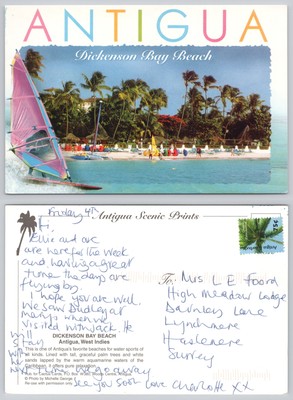 ANTIGUA
Dickenson Bay Beach
Friday 4th
Antigua Scenic Prints
Hi,
Ellie and are
are here for the week
and having a great
time the days are
flying by.
I hope you are well
we saw Dudley at
when we
visited with Jack. He
will
stay
DICKENSON BAY BEACH
Antigua, West Indies
This is one of Antigua's favorite beaches for water sports of
all kinds. Lined with tall, graceful palm trees and white
sands lapped by the warm aquamarine waters of the
Caribbean. It offers pure relaxation.
© Photo by Michelle George
next time we go away
See you soon love Charlotte XX
To: Mrs L E Foord
High Meadow Lodge
Lane
Lynchmere
Haslemere
Surrey